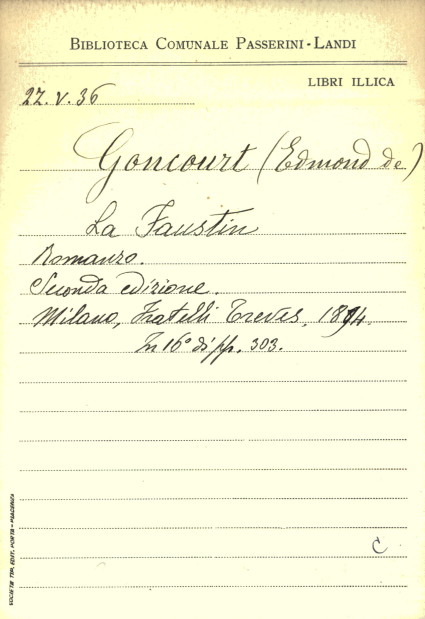 BIBLIOTECA COMUNALE PASSERINI-LANDI
LIBRI ILLICA
22.V.36
Goncourt (Edmond de)
La Faustin
Romanzo.
Seconda edizione.
Milano, Fratelli Treves, 1894.
In 16° di pp. 303.
C
SOCIETÀ TIP. EDIT. PORTA - PIACENZA